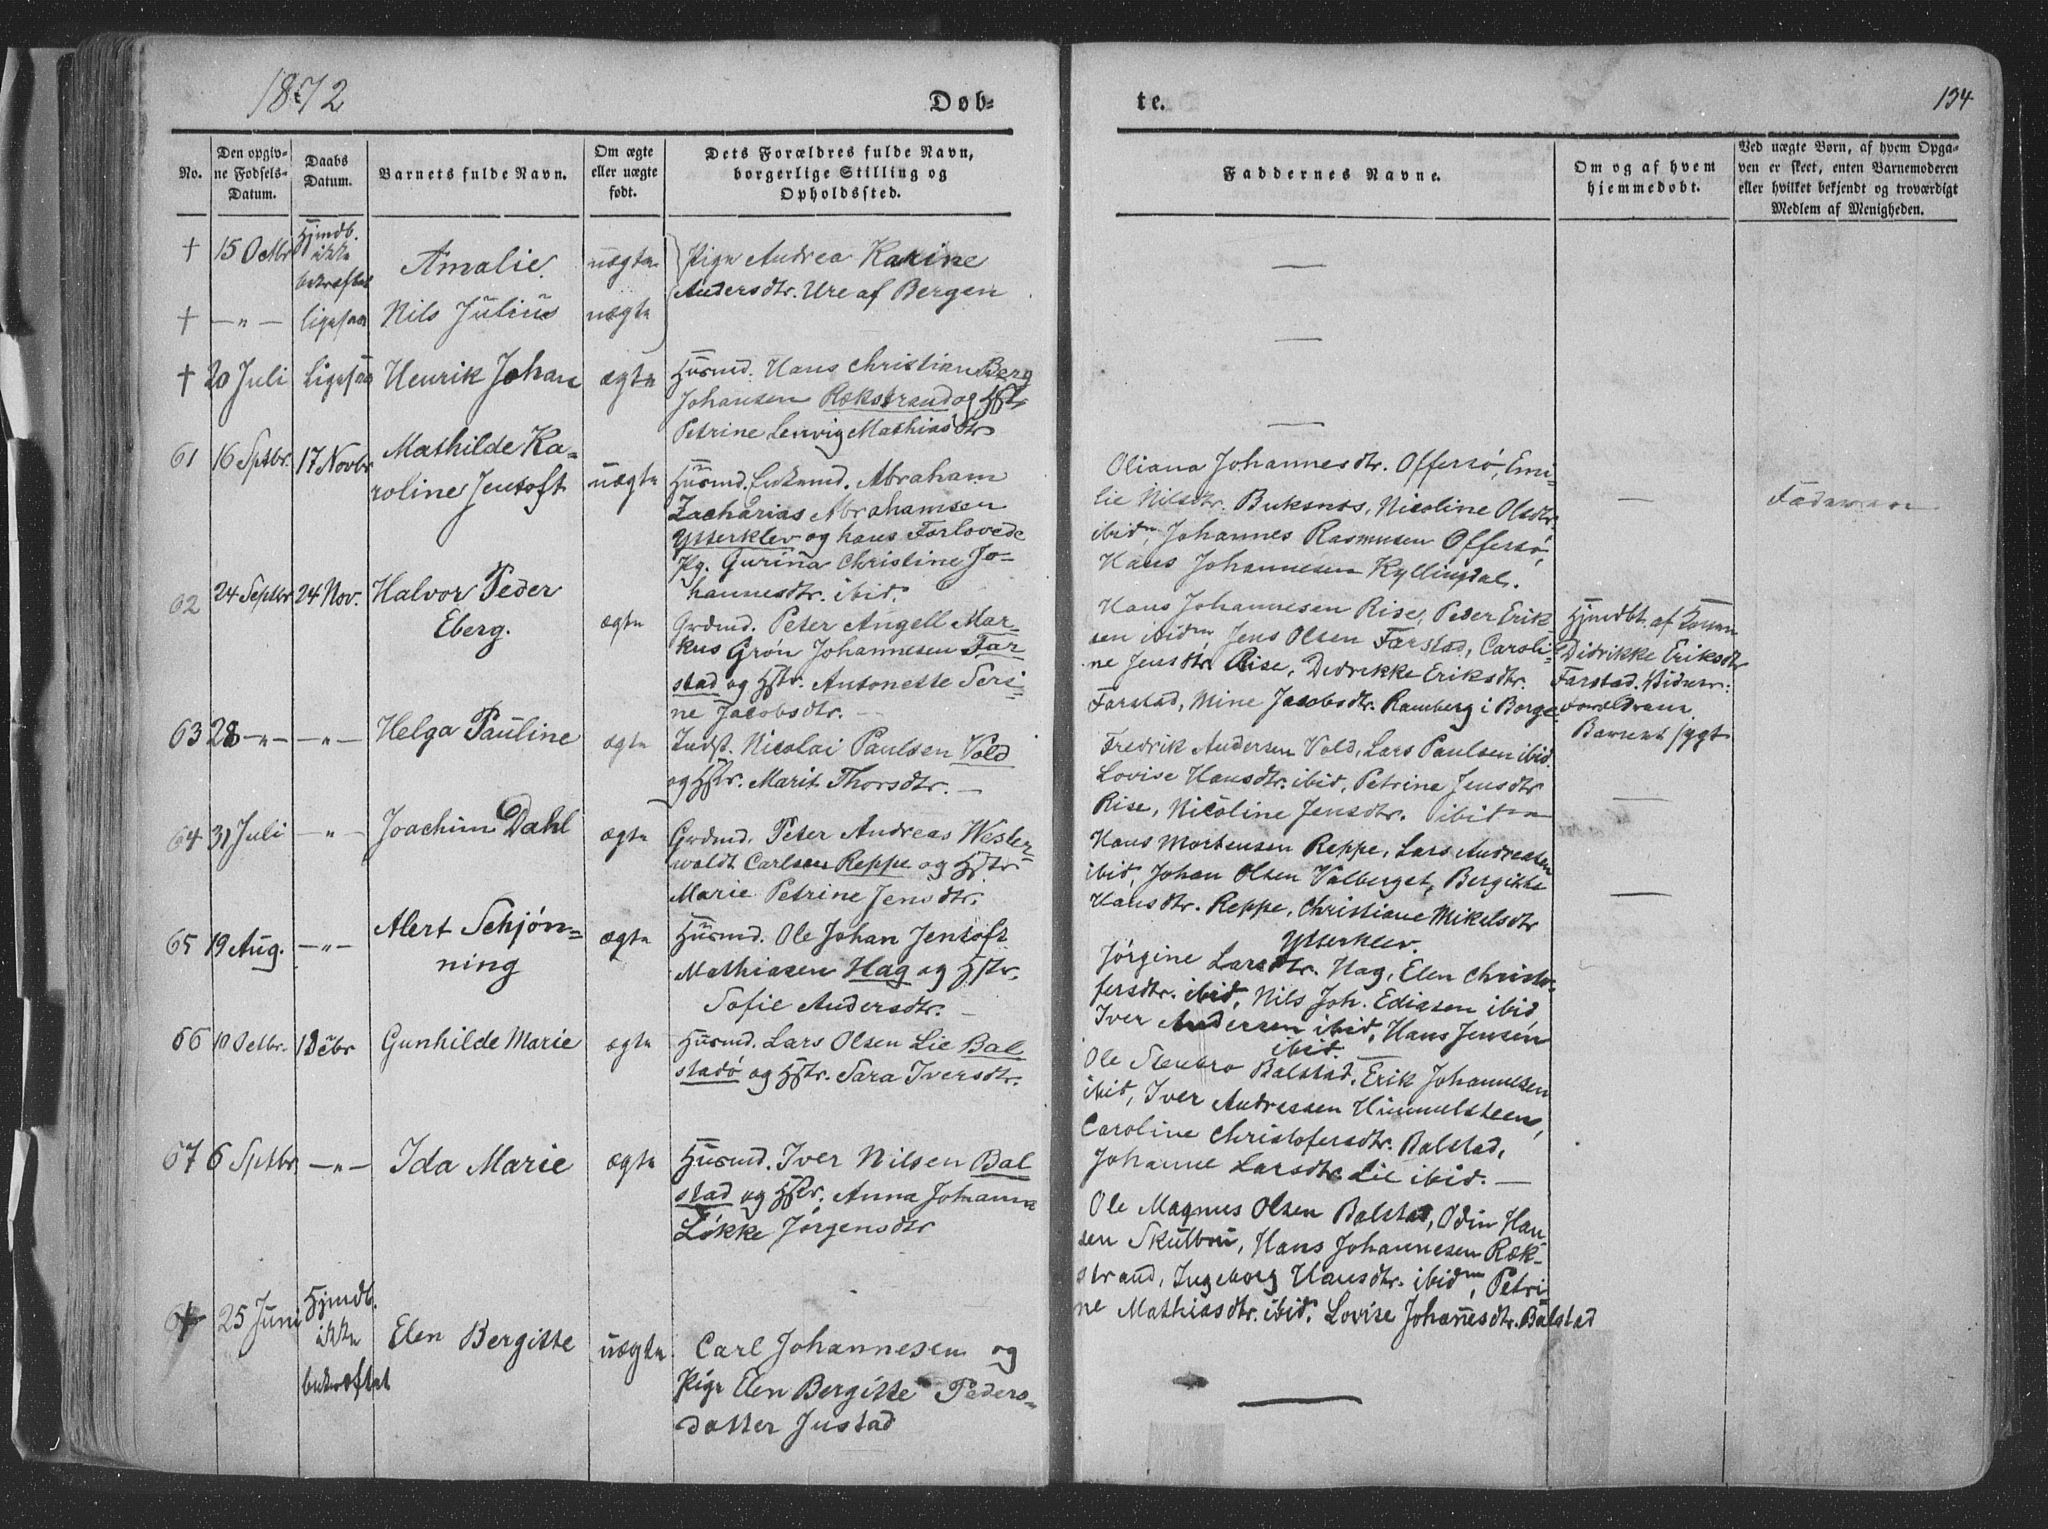 1872
Døb-
te.
134
No.
Den opgiv-
ne Fødsels-
Datum.
Daabs
Datum.
Barnets fulde Navn.
Om ægte
eller uægte
født.
Dets Forældres fulde Navn,
borgerlige Stilling og
Opholdssted.
Faddernes Navne.
Om og af hvem
hjemmedøbt.
Ved uægte Børn, af hvem Opga-
ven er skeet, enten Barnemoderen
eller hvilket bekjendt og troværdigt
Medlem af Menigheden.
† 15 Hjmdb.
ikke
bekræftet
Amalie.
uægte
Pige Andrea Karine
Andersdtr. Ure af Bergen
—
† —„— ligesaa Nils Julius uægte
—
† 20 Juli Ligesaa Henrik Johan ægte
Husmd. Hans Christian Berg
Johansen Rækstrand og Hstr
Petrine Lenvig Mathiasdtr
—
61 16 Septbr. 17 Novbr Mathilde Ka-
roline Jentoft
uægte
Husmd. Enkemd. Abraham
Zacharias Abrahamsen
Ytterklev og hans Forlovede
Pg. Gurina Christine Jo-
hannesdtr. ibid.
Oliana Johannesdtr. Offersø, Emi-
lie Nilsdtr. Buksnes, Nicoline Olsdtr
ibidm, Johannes Rasmusen Offersø,
Hans Johannesen Kyllingdal.
—
Faderen
62 24 Septbr 24 Nov. Halvor Peder
Eberg.
ægte
Grdmd. Peter Angell Mar-
kus Grøn Johannesen Far
stad og Hstr. Antonette Seri-
ne Jacobsdtr. —
Hans Johannesen Rise, Peder Erik-
sen ibidm, Jens Olsen Farstad, Caroli-
ne Jensdtr Rise, Didrikke Eriksdtr.
Farstad, Mine Jacobsdtr. Ramberg i Borge
Hjmdbt. af
Didrikke Eriksdtr
Farstad.
Forældrene
Barnet sygt
63 28 —„— —„— Helga Pauline ægte
Indst. Nicolai Paulsen Vold
og Hstr. Marit Thorsdtr. —
Fredrik Andersen Vold, Lars Paulsen ibid
Lovise Hansdtr. ibid, Petrine Jensdtr
Rise, Nicoline Jensdtr. ibidem
—
64 31 Juli —„— Joachim Dahl ægte
Grdmd. Peter Andreas Wester-
waldt Carlsen Reppe og Hstr
Marie Petrine Jensdtr.
Hans Mortensen Reppe, Lars Andreasen
ibid, Johan Olsen Valberget, Bergitte
Hansdtr. Reppe, Christiane Mikelsdtr
Ytterklev.
—
65 19 Aug. —„— Alert Schjøn-
ning
ægte
Husmd. Ole Johan Jentoft
Mathiasen Hag og Hstr.
Sofie Andersdtr. —
Jørgine Larsdtr. Hag, Elen Christo-
fersdtr. ibid, Nils Joh. Ediasen ibid
Iver Andersen ibid, Hans Jensen
ibid.
66 10 Octbr. 1 Debr Gunhilde Marie ægte
Husmd. Lars Olsen Lie Bal
stadø og Hstr. Sara Iversdtr.
Ole Stenbro Balstad, Erik Johannesen
ibid, Iver Andressen Himmelsteen,
Caroline Christofersdtr. Balstad,
Johanne Larsdtr Lie ibid. —
67 6 Septbr —„— Ida Marie ægte
Husmd. Iver Nilsen Bal
stad og Hstr. Anna Johanna
Løkke Jørgensdtr
Ole Magnus Olsen Balstad, Odin Han-
sen Skulbru, Hans Johannesen Ræk-
strand, Ingeborg Hansdtr. ibidm, Petri-
ne Mathiasdtr. ibid, Lovise Johannesdtr. Balstad
† 25 Juni Hjmdb.
ikke
bekræftet
Elen Bergitte uægte
Carl Johannesen og
Pige Elen Bergitte Peders-
datter Justad
—